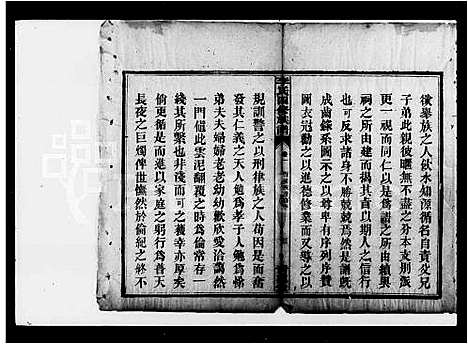 徵舉族之人飲水知源循名自責父兄
子弟此親彼曙無不盡之分本支別派
更一視而同仁以是為譜之所由續與
祠之所由建而揭其意以期人之信行
也可反求諸身不勝兢兢焉然是譜既
成齒錄系圖不之以尊卑有序列序贊
圖衣冠勸之以進德修業而又誡之家
規訓警之以刑律族之人苟因是而奮
發其仁義之天人勉為孝子人勉為悌
弟夫夫婦婦老老幼幼歡欣愛洽藹然
一門值此雲泥翻覆之時為倫常存一
綫其所繫也非淺而可之穫幸亦厚矣
偷更於是而進以家庭之躬行為普天
長夜之巨燭俾世憮然於倫紀之終不